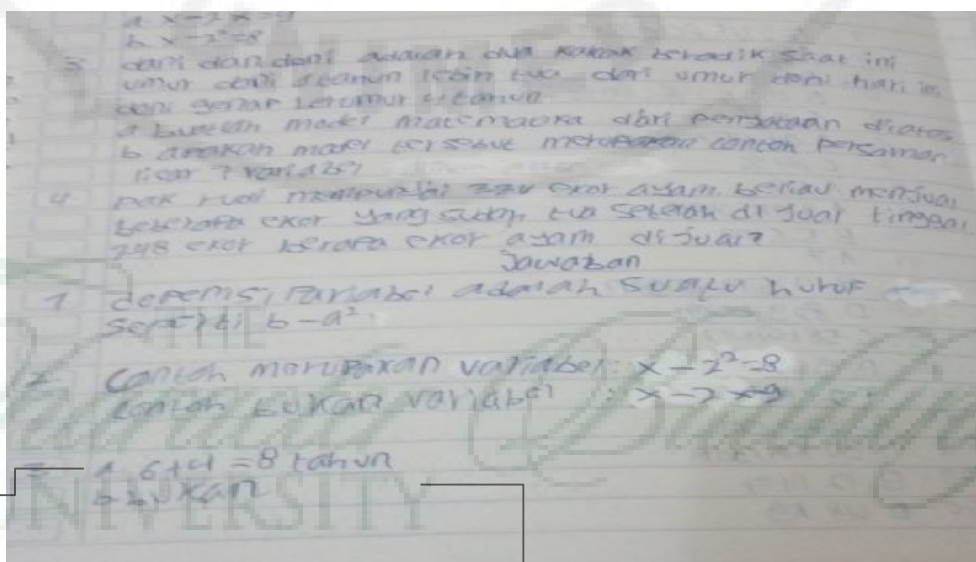 a x-2x=9
b x-2²=8
3 dani dan doni adalah dua kakak beradik saat ini
umur doni tahun lebih tua dari umur doni hari ini
doni genap berumur 4 tahun
a buatlah model matematika dari pernyataan diatas
b apakah model tersebut merupakan contoh persamaan
liear 1 variabel
4 pak rudi mempunyai ekor ayam beliau menjual
beberapa ekor yang sudah tua setelah di jual tinggal
248 ekor berapa ekor ayam dijual?
Jawaban
1 depenisi variabel adalah suatu huruf
seperti b-a²
2 contoh merupakan variabel: x-2²=8
contoh bukan variabel : x-2x9
3 a 6+4=8 tahun
b bukan
THE
UNIVERSITY